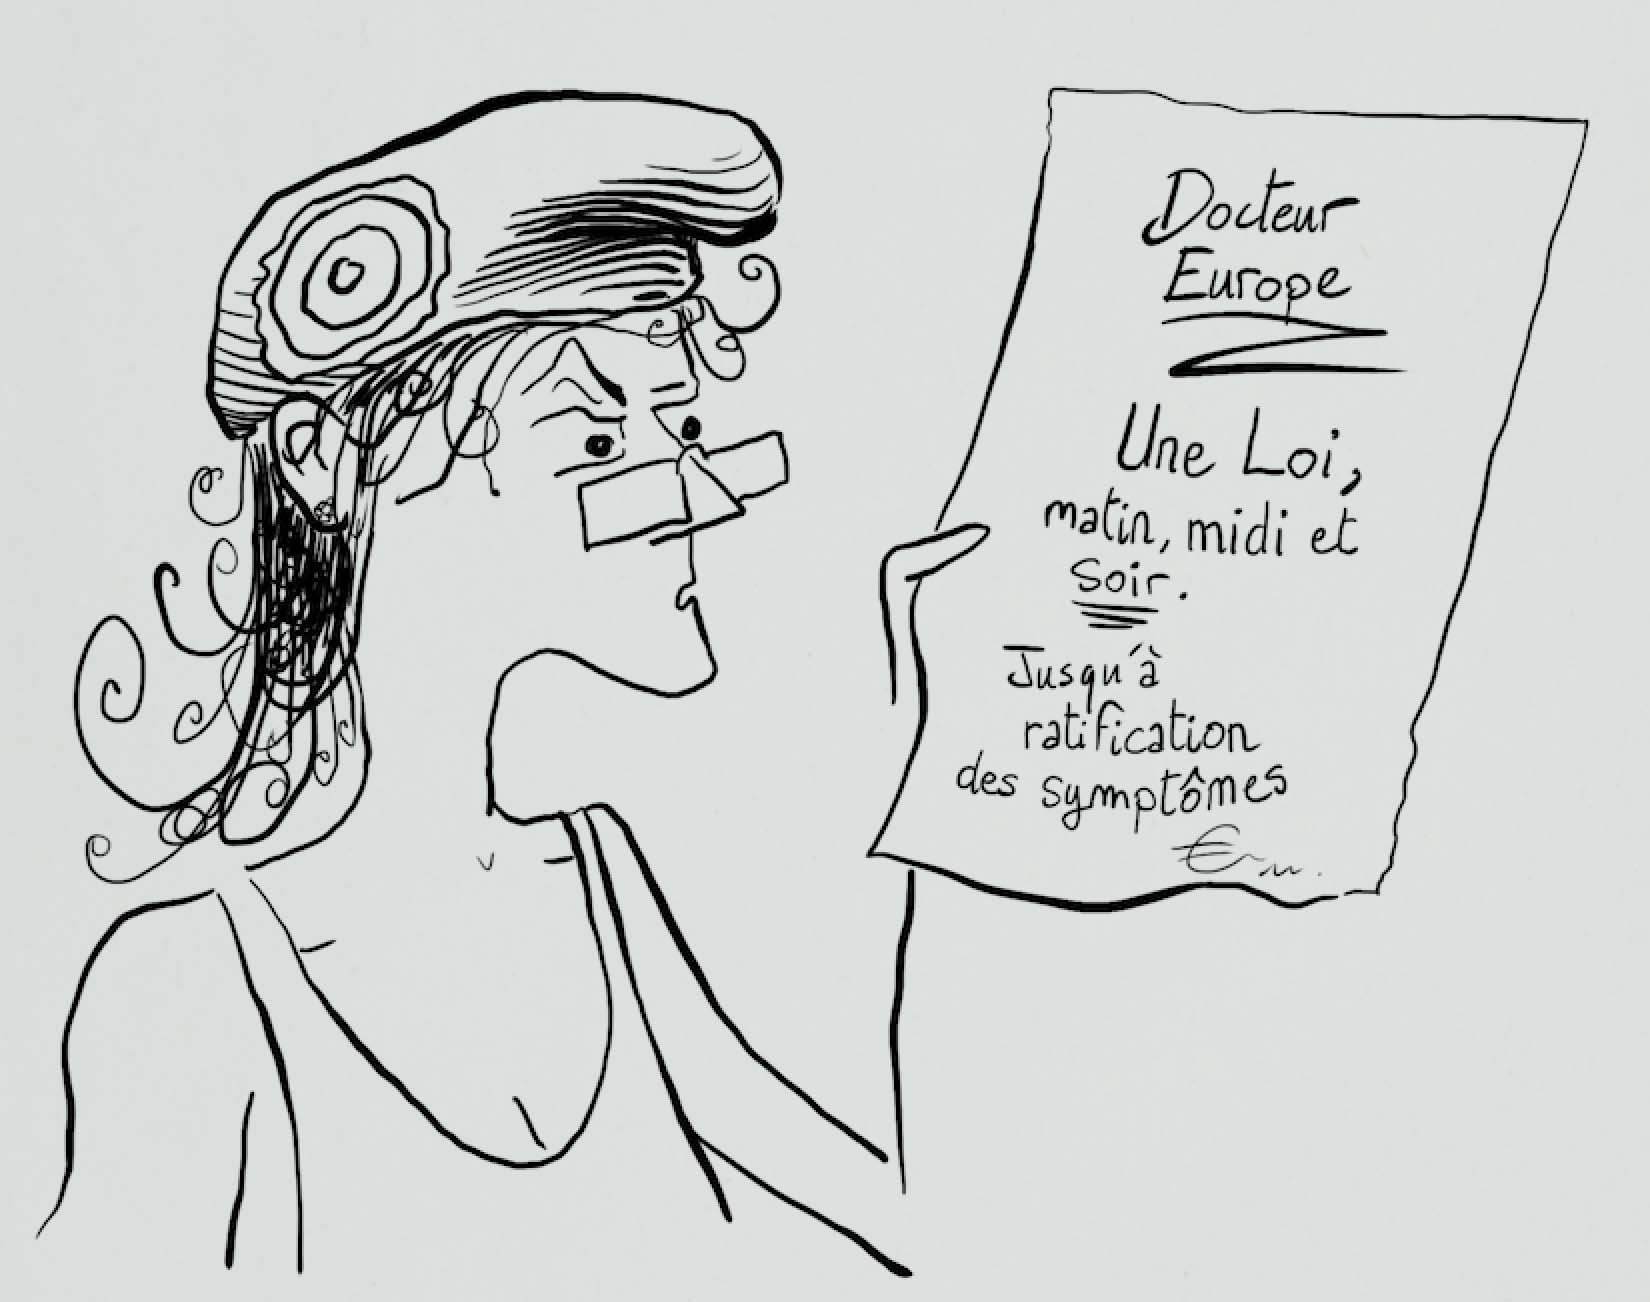 Docteur
Europe
Une Loi,
matin, midi et
soir.
Jusqu'à
ratification
des symptômes